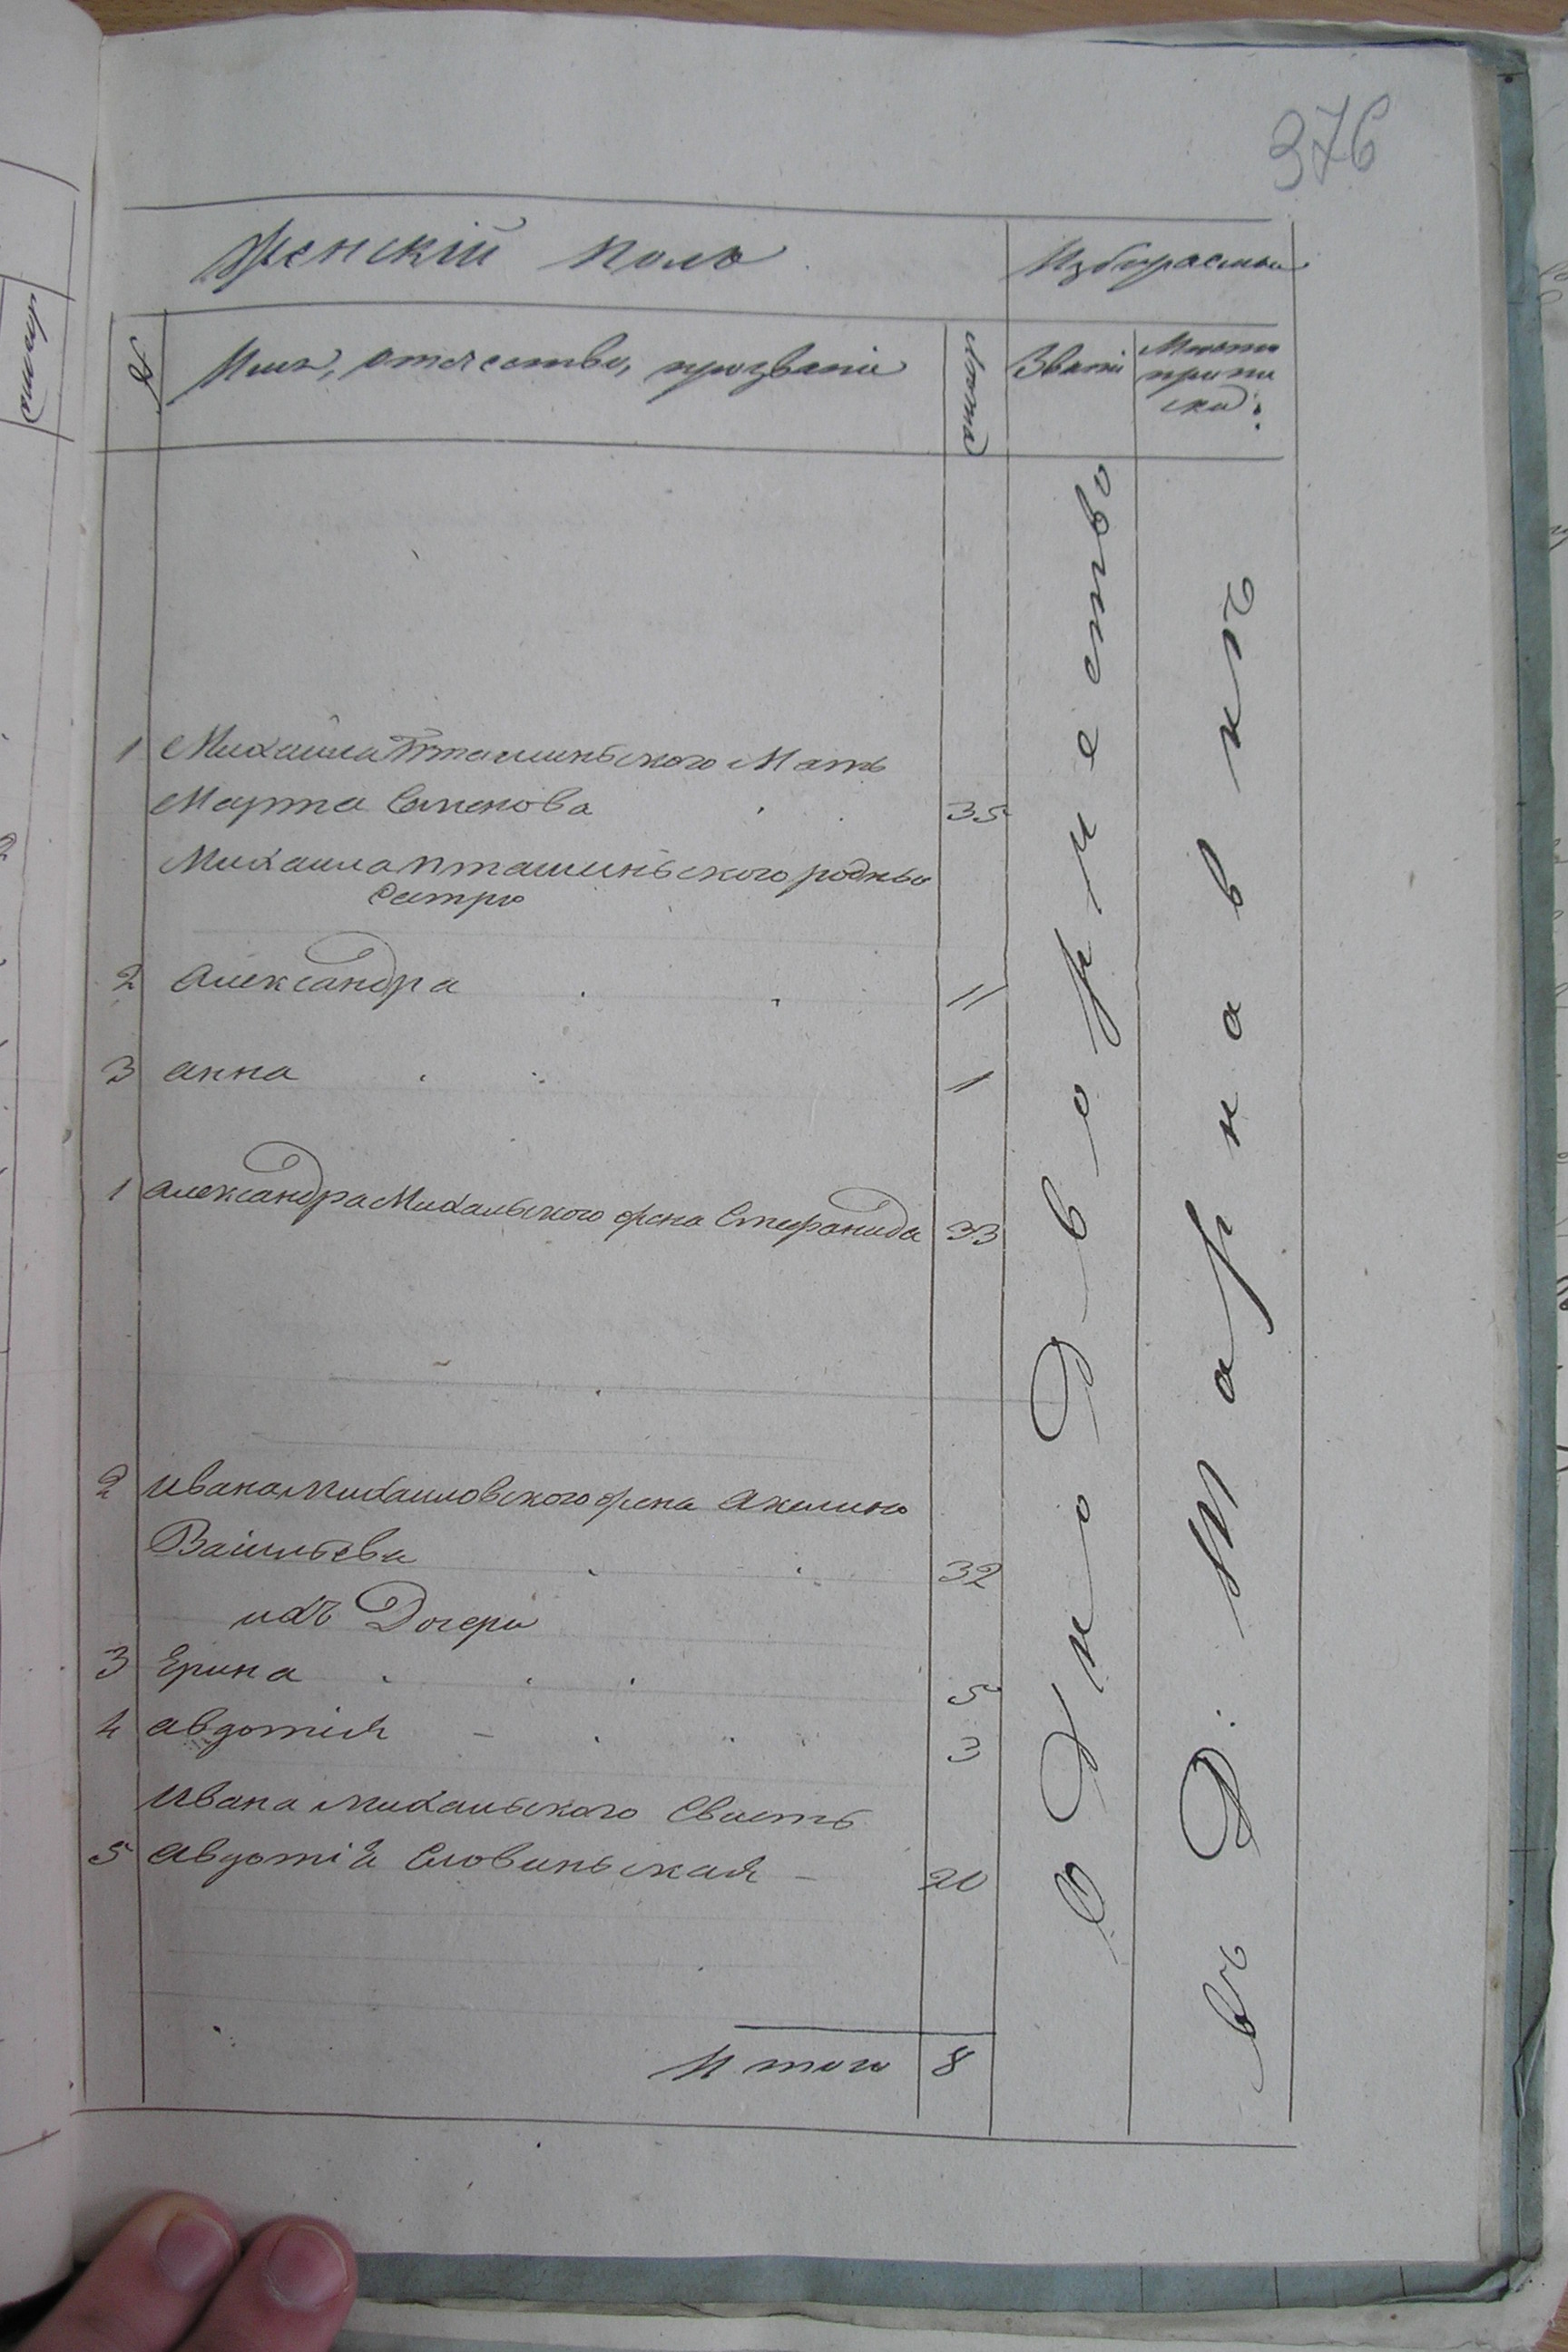 376
Женскій полъ
Избираемыи
№
Имя, отечество, прозваніе
Лѣта
Званіе
Место
припи
ски
1 Михаила Пташиньского Мать
Марта Семенова 35
Михаила Пташиньского родные
Сестры
2 Александра 11
3 анна 1
1 Александра Михальского жена Стефанида 33
2 Ивана Михаиловского жена Акилина
Васильева 32
ихъ Дочери
3 Ерина 5
4 авдотія 3
Ивана Михальского Свасть
5 авдотія Словиньская 20
Итого 8
Однодворчество
въ Д.